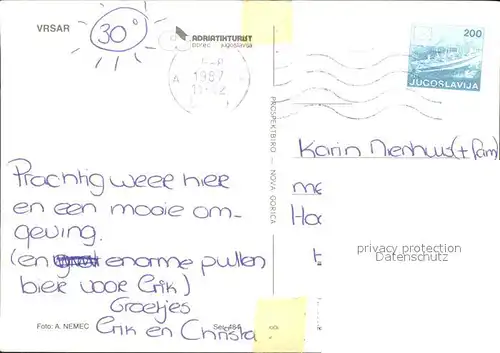 VRSAR
30°
ADRIATIKTURIST
POREC Jugoslavija
1987
200
JUGOSLAVIJA
PROSPEKTBIRO — NOVA GORICA
Prachtig weer hier
en een mooie om-
geving.
(en enorme pullen
bier voor Erik)
Groetjes
Erik en Christa
Karin Nienhuis (+ fam)
me
Ha
privacy protection
Datenschutz
Foto: A. NEMEC